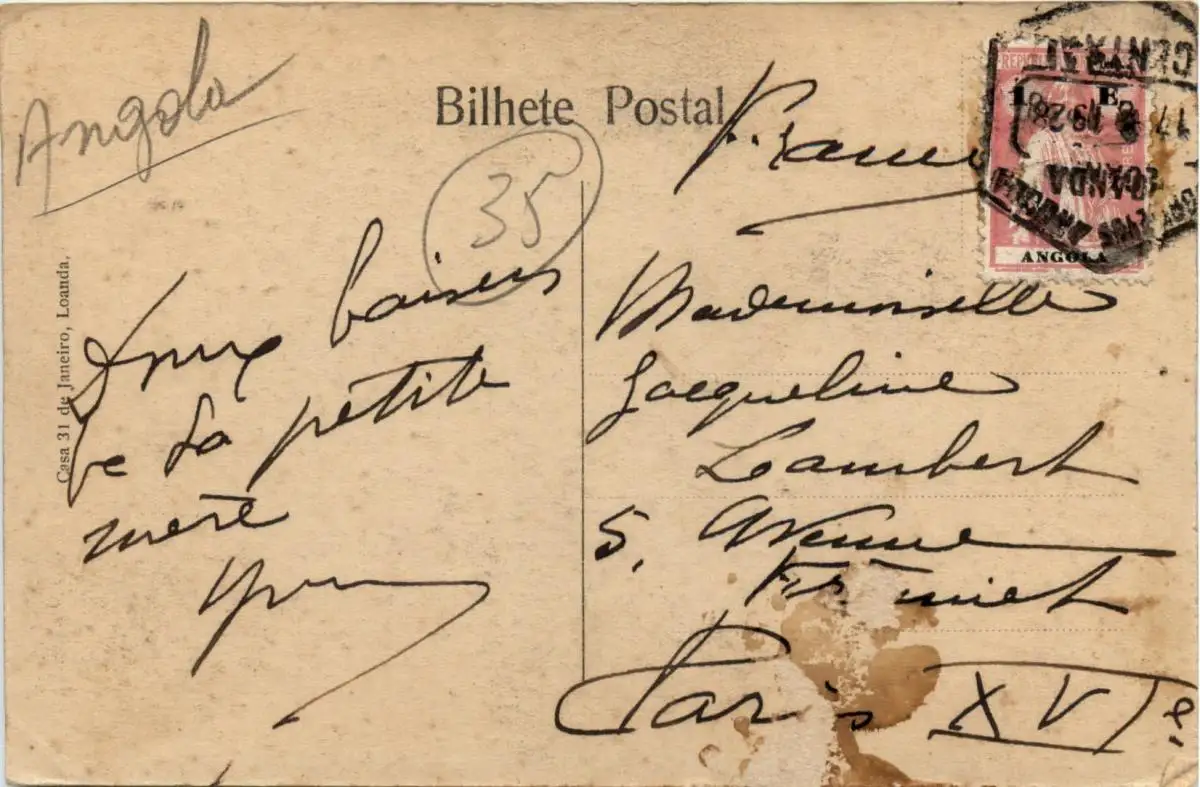 Angola
Bilhete Postal
35
France
REPUBLICA
1 E.
ANGOLA
CENTRAL
17 8 1928
LOANDA
ANGOLA
Casa 31 de Janeiro, Loanda.
Doux baisers
de ta petite
mère
Mademoiselle
Jacqueline
Lambert
5, Avenue
Frémiet
Paris XVIe.